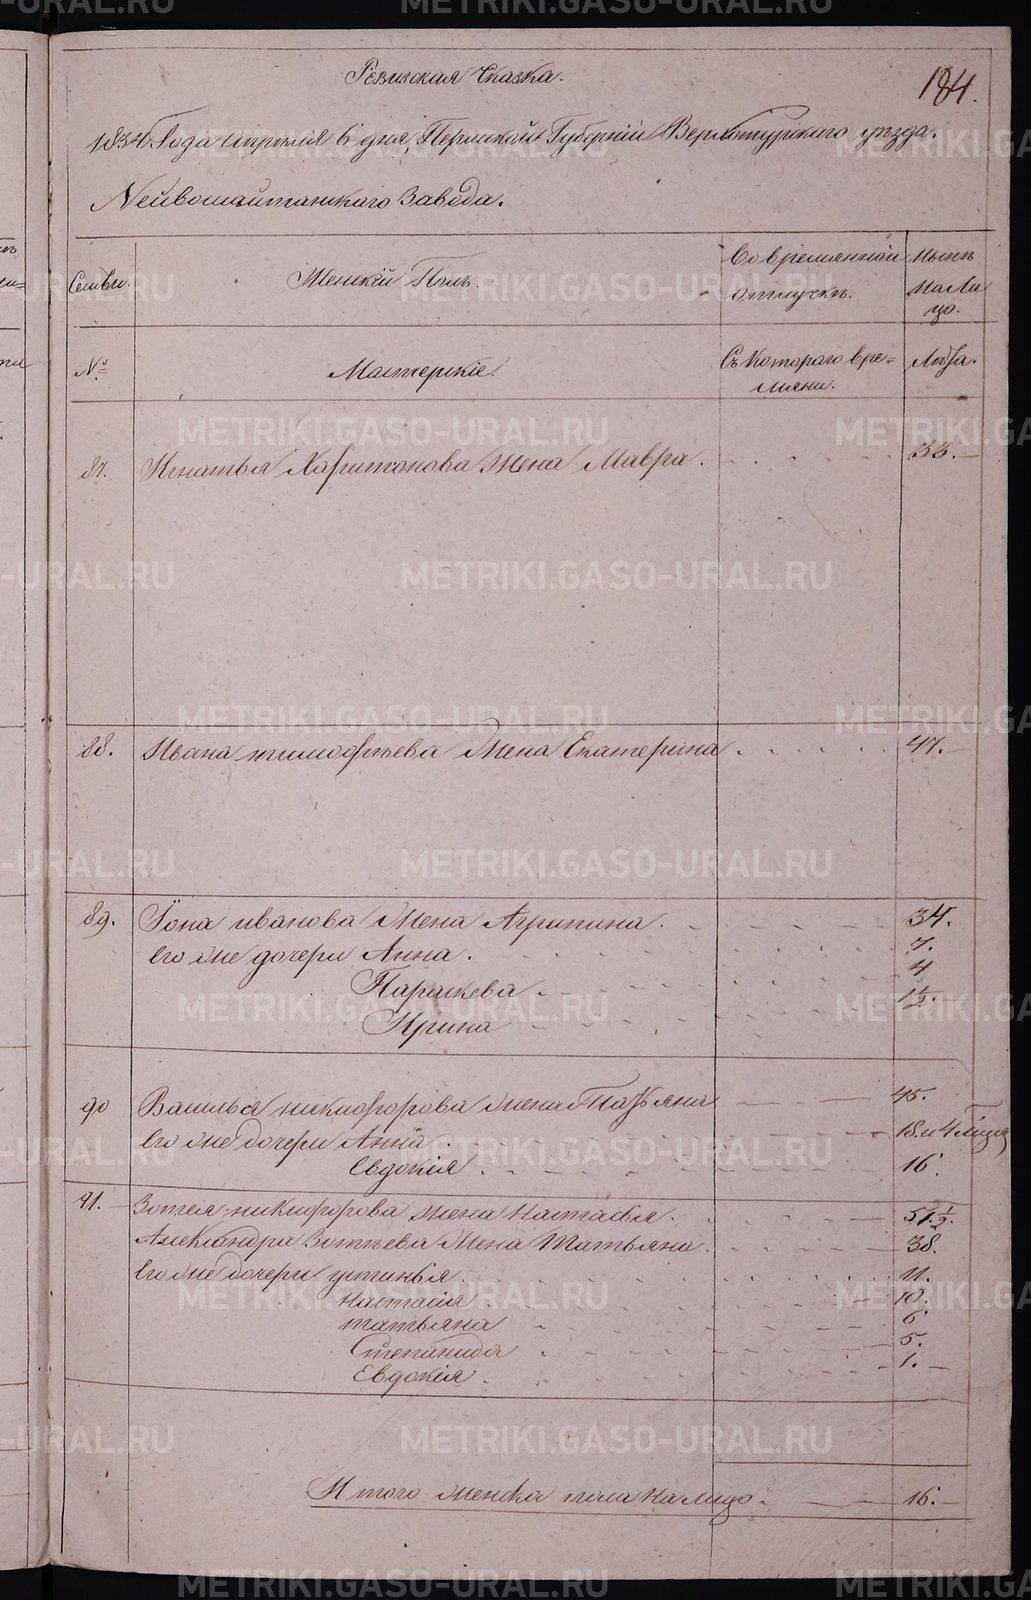 Ревизская Сказка.
184.
1834 Года апреля 6 дня, Пермской Губернiи Верхотурского уезда.
Нейвошайтанскаго Завода.
Семьи. Женскiй Полъ. Во временной отлучкѣ. Нынѣ на Лицо.
№ Мастерскiе. Съ Котораго времяни. Лѣта.
87. Игнатья Харитонова Жена Мавра. 33.
88. Ивана тимофѣева Жена Екатерина 47.
89. Iона иванова Жена Агрипина. 34.
Его же дочери Анна. 7.
Парашкева. 4
Ирина 1 1/2.
90 Василья никифорова жена Татьяна 45.
Его же дочери Анна. 18
Евдокiя. 16.
91. Зотея никифорова жена Настасья. 51 1/2.
Александра Зотѣева Жена Татьяна. 38.
Его же дочери устинья. 11.
настасiя. 10.
татьяна 6
Степанида 5.
Евдокiя. 1.
Итого женска пола На лицо. 16.
METRIKI.GASO-URAL.RU